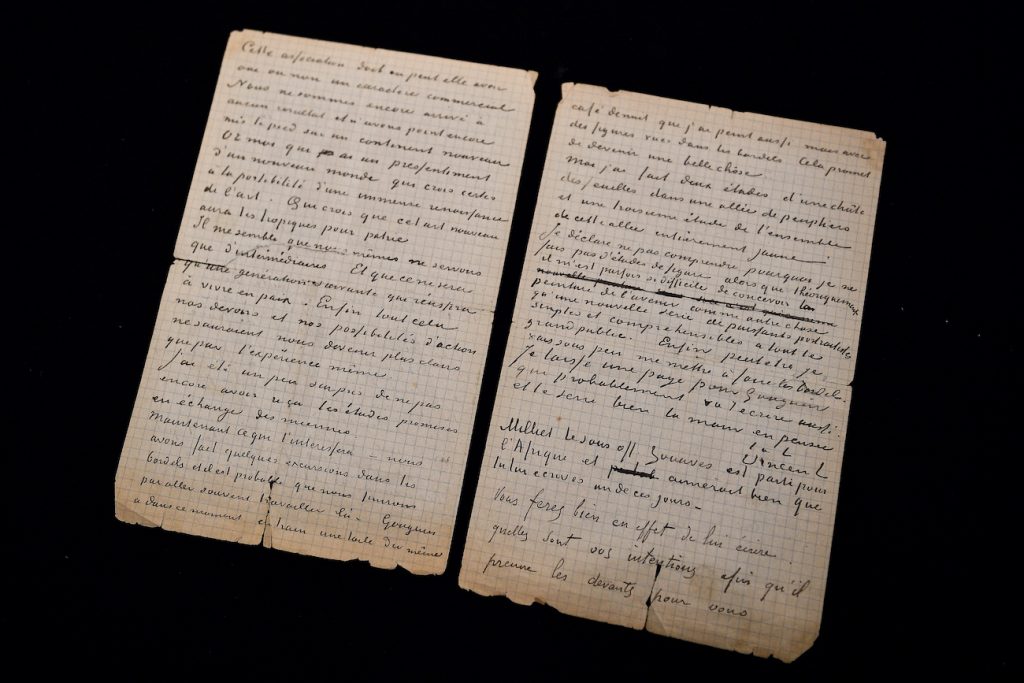 Cette association doit ou peut elle avoir
oui ou non un caractère commercial
Nous ne sommes encore arrivé à
aucun résultat et n'avons point encore
mis le pied sur un continent nouveau
Or moi que ai un pressentiment
d'un nouveau monde qui crois certes
à la possibilité d'une immense renaissance
de l'art. Qui crois que cet art nouveau
aura les tropiques pour patrie
Il me semble que nous mêmes ne servons
que d'intermédiaires Et que ce ne sera
qu'une génération suivante qui réussira
à vivre en paix. Enfin tout cela
nos devoirs et nos possibilités d'action
ne sauraient nous devenir plus clairs
que par l'expérience même
j'ai été un peu surpris de ne pas
encore avoir reçu les études promises
en échange des miennes.
Maintenant ce que t'interessera – nous
avons fait quelques excursions dans les
bordels et il est probable que nous finirons
par aller souvent travailler là – Gauguin
a dans ce moment en train une toile du même
café de nuit que j'ai peint aussi mais avec
des figures vues dans les bordels Cela promet
de devenir une belle chôse
Moi j'ai fait deux études d'une chûte
des feuilles dans une allée de peupliers
et une troisieme étude de l'ensemble
de cette allée entièrement jaune.
Je déclare ne pas comprendre pourquoi je ne
fais pas d'études de figure alors que théoriquement
il m'est parfois si difficile de concevoir la
peinture de l'avenir comme autre chose
qu'une nouvelle série de puissants portraitistes
simples et compréhensibles à tout le
grand public. Enfin peut etre je
vais sous peu me mettre à faire les bordels.
Je laisse une page pour Gauguin
que probablement va t'ecrire aussi
et te serre bien la main en pensee
t. à t.
Vincent
Milliet le sous off Zouaves est parti pour
l'Afrique et aimerait bien que
tu lui ecrives un de ces jours –
Vous ferez bien en effet de lui écrire
quelles sont vos intentions afin qu'il
prenne les devants pour vous